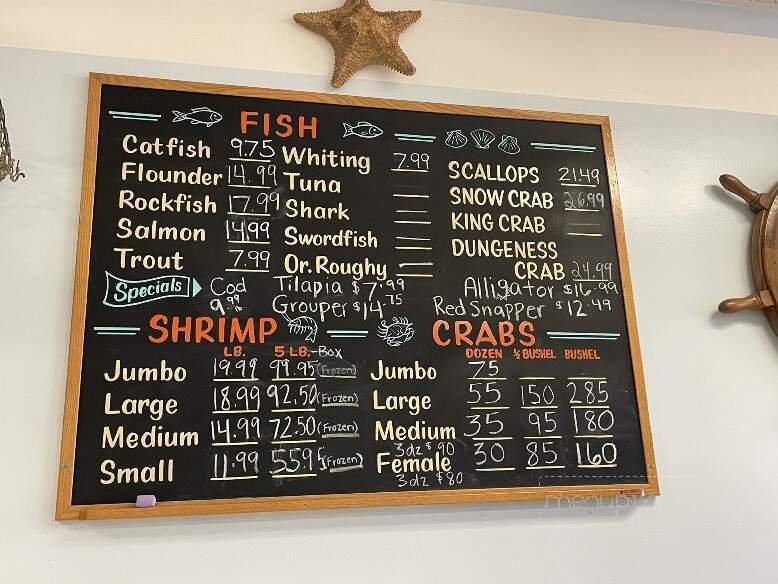 FISH
Catfish 9.75
Flounder 14.99
Rockfish 17.99
Salmon 14.99
Trout 7.99
Whiting 7.99
Tuna
Shark
Swordfish
Or. Roughy
SCALLOPS 21.49
SNOW CRAB 26.99
KING CRAB
DUNGENESS
CRAB 24.99
Specials
Cod
9.99
Tilapia $7.99
Grouper $14.75
Alligator $16.99
Red Snapper $12.49
SHRIMP
LB. 5 LB.-Box
Jumbo 19.99 99.95 (Frozen)
Large 18.99 92.50 (Frozen)
Medium 14.99 72.50 (Frozen)
Small 11.99 55.95 (Frozen)
CRABS
DOZEN ½ BUSHEL BUSHEL
Jumbo 75
Large 55 150 285
Medium 35 95 180
3dz $90
Female 30 85 160
3dz $80
menupix